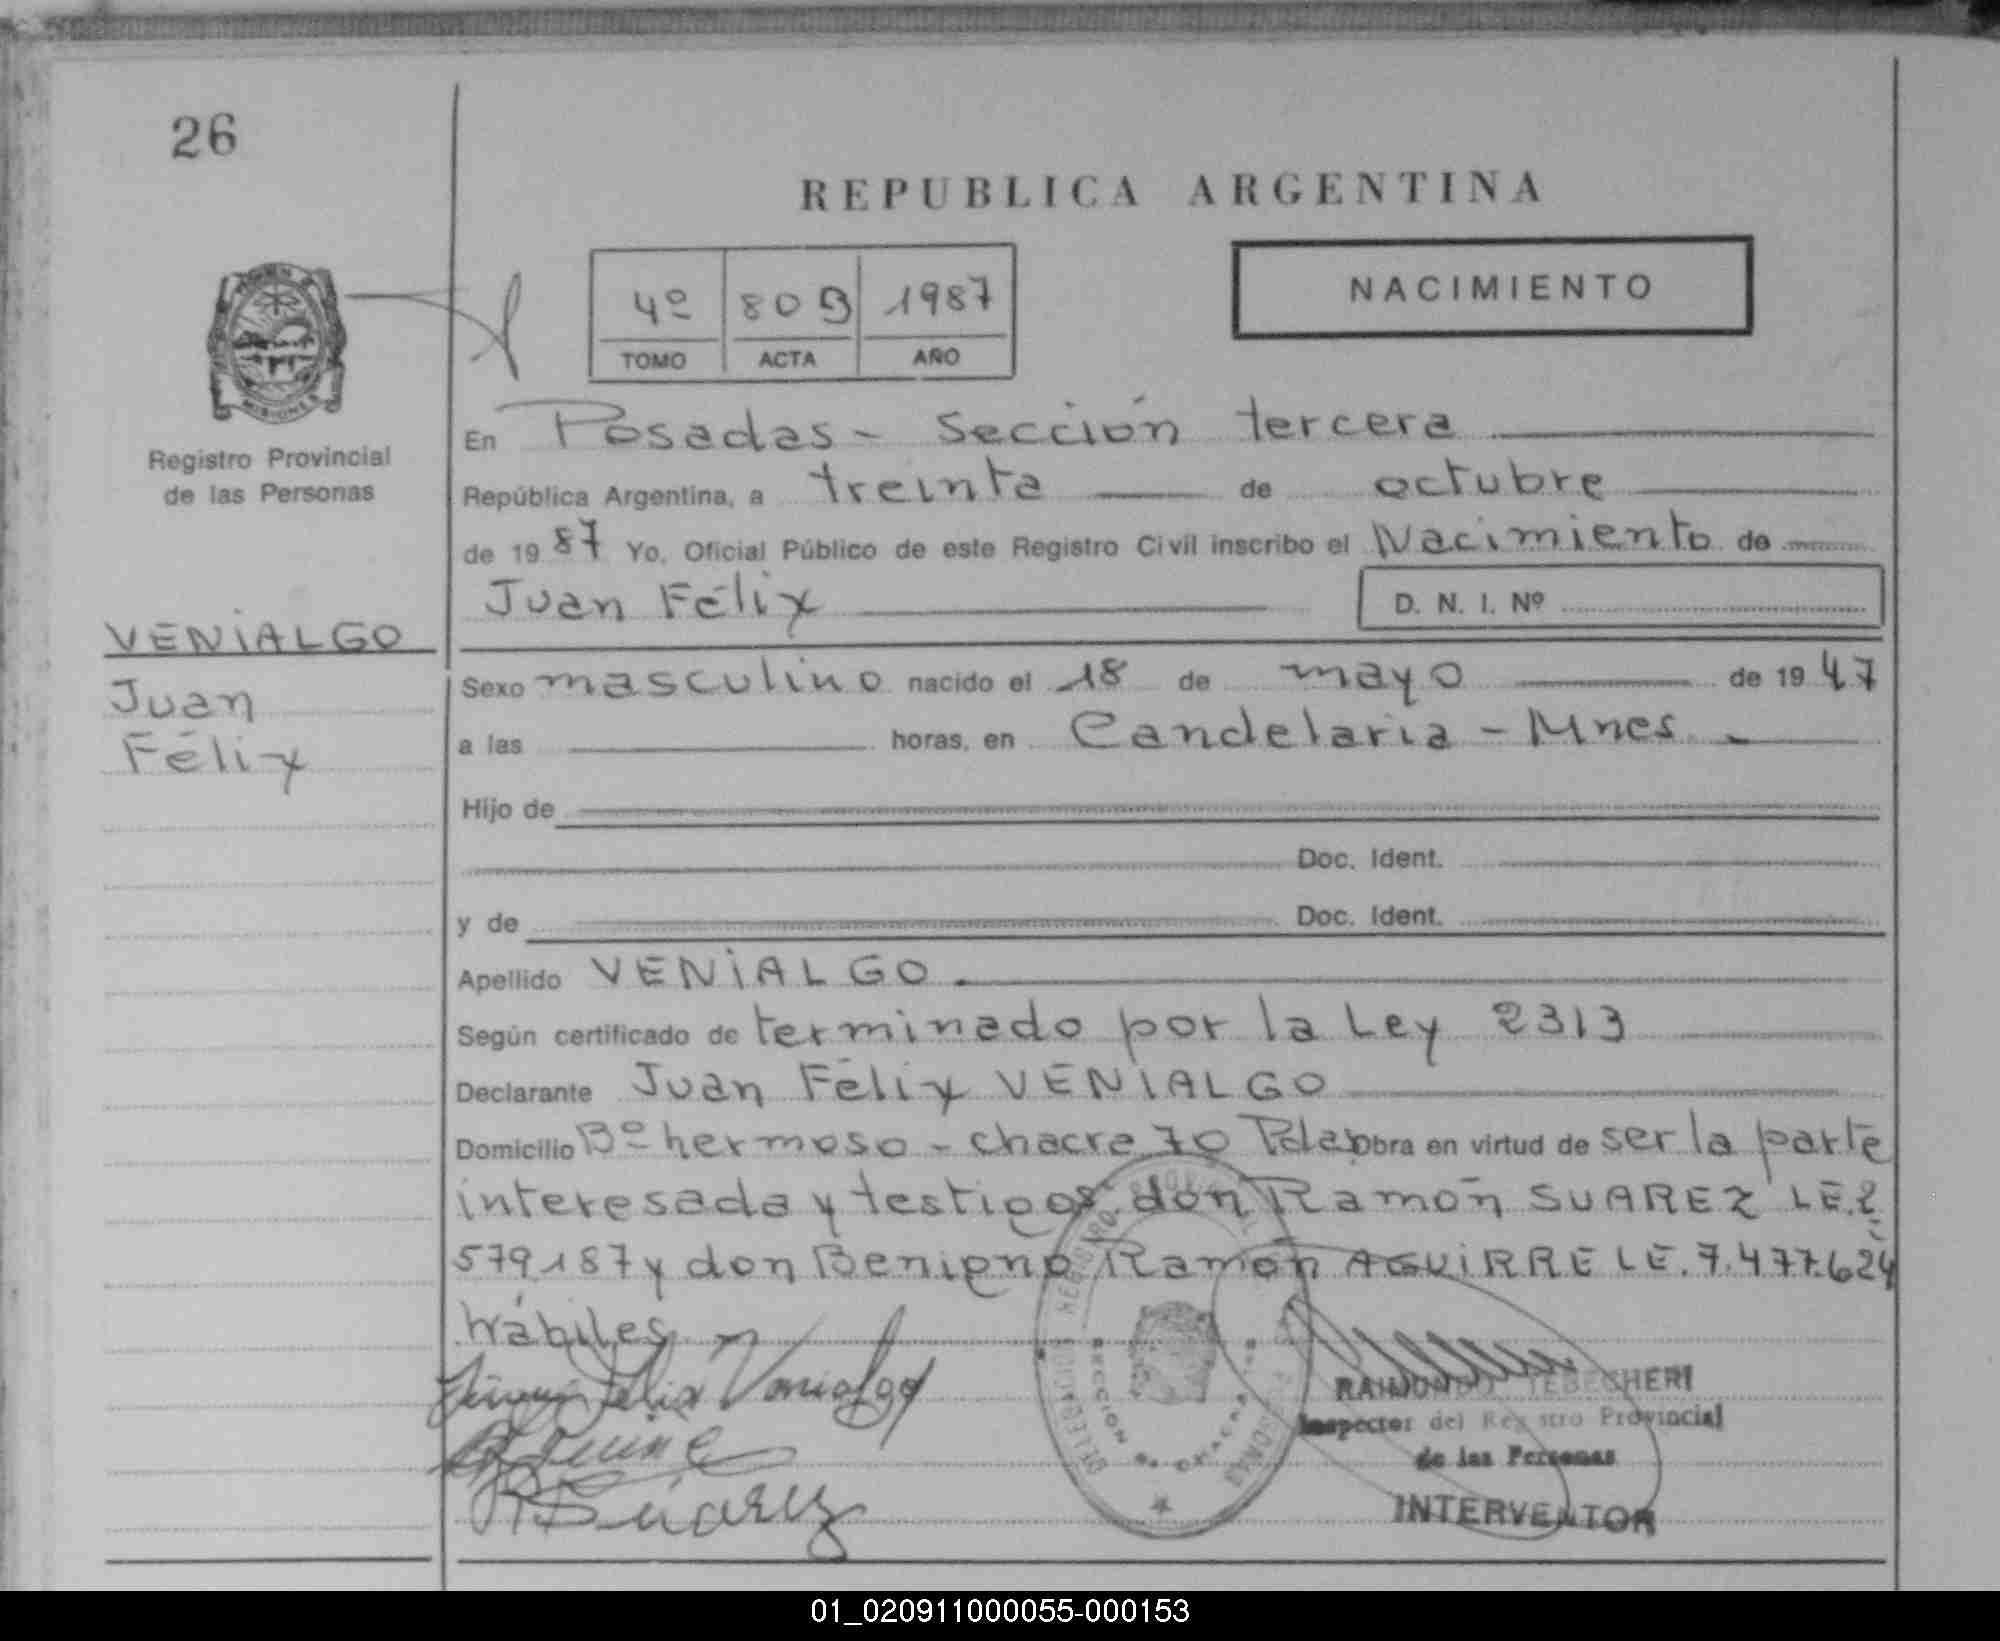 26
REPUBLICA ARGENTINA
4º 809 1987
TOMO ACTA AÑO
NACIMIENTO
MISIONES
Registro Provincial
de las Personas
VENIALGO
Juan
Félix
En Posadas - Sección tercera
República Argentina, a treinta de octubre
de 1987 Yo, Oficial Público de este Registro Civil inscribo el Nacimiento de
Juan Félix D. N. I. Nº
Sexo masculino nacido el 18 de mayo de 1947
a las horas, en Candelaria - Mnes.
Hijo de
Doc. Ident.
y de Doc. Ident.
Apellido VENIALGO.
Según certificado de terminado por la Ley 2313
Declarante Juan Félix VENIALGO
Domicilio Bº hermoso - chacra 70 Pdas Obra en virtud de ser la parte
interesada y testigos don Ramón SUAREZ LE.2.
579187 y don Benigno Ramón AGUIRRE LE. 7.477.624
hábiles
Juan Felix Venialgo
R Súarez
RAIMUNDO TEBECHERI
Inspector del Registro Provincial
de las Personas
INTERVENTOR
01_020911000055-000153